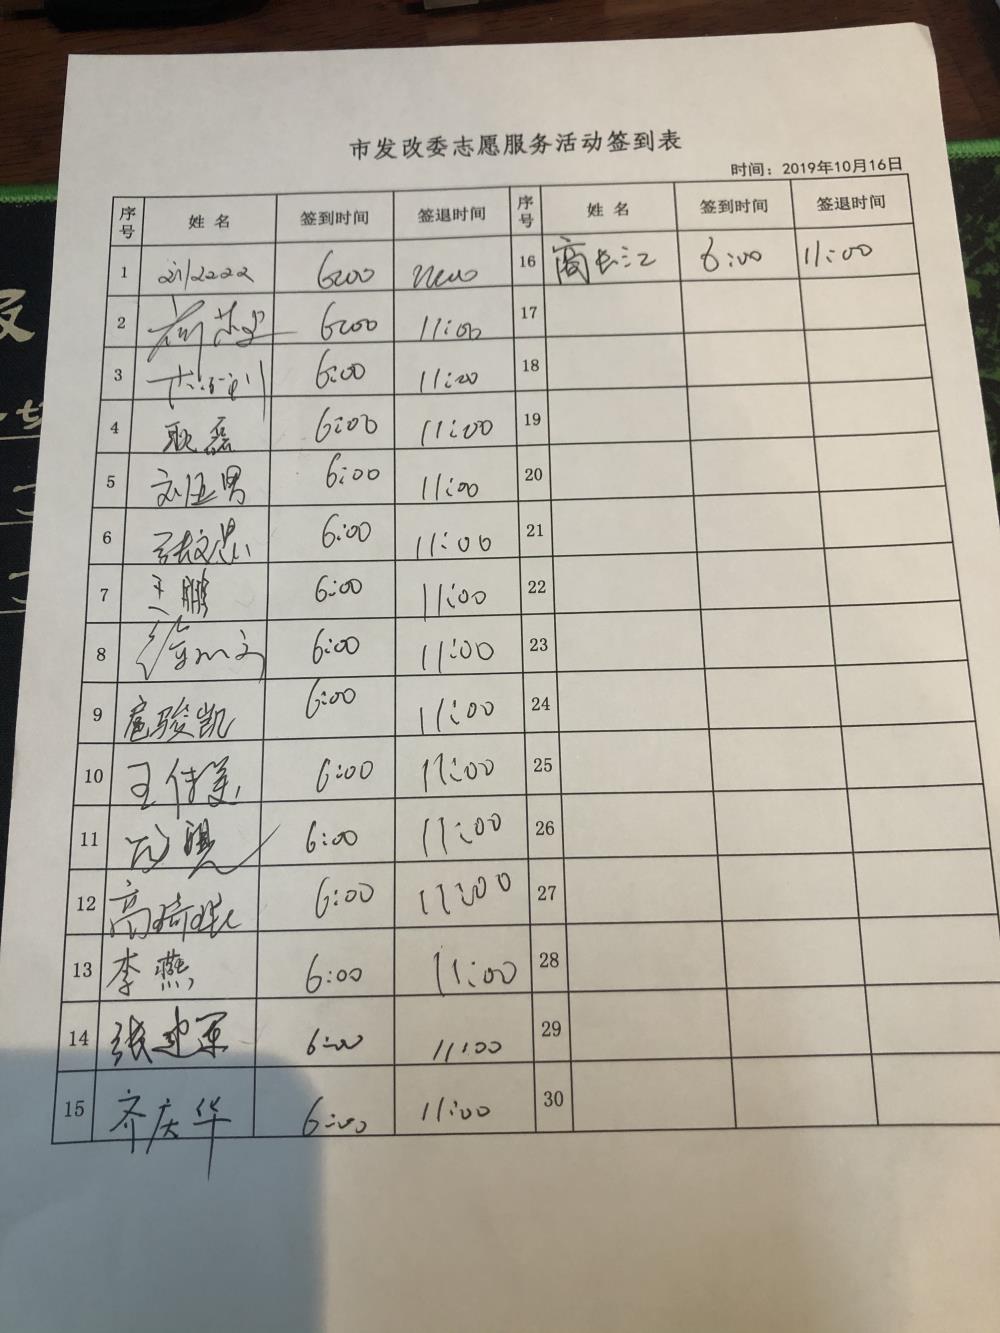 市发改委志愿服务活动签到表
时间：2019年10月16日
序号 姓 名 签到时间 签退时间 序号 姓 名 签到时间 签退时间
1 6:00 16 商长江 6:00 11:00
2 6:00 11:00 17
3 6:00 11:00 18
4 耿磊 6:00 11:00 19
5 刘伍男 6:00 11:00 20
6 张文忠 6:00 11:00 21
7 王鹏 6:00 11:00 22
8 6:00 11:00 23
9 扈骏凯 6:00 11:00 24
10 王传美 6:00 11:00 25
11 6:00 11:00 26
12 高琦 6:00 11:00 27
13 李燕 6:00 11:00 28
14 张建军 6:00 11:00 29
15 齐庆华 6:00 11:00 30